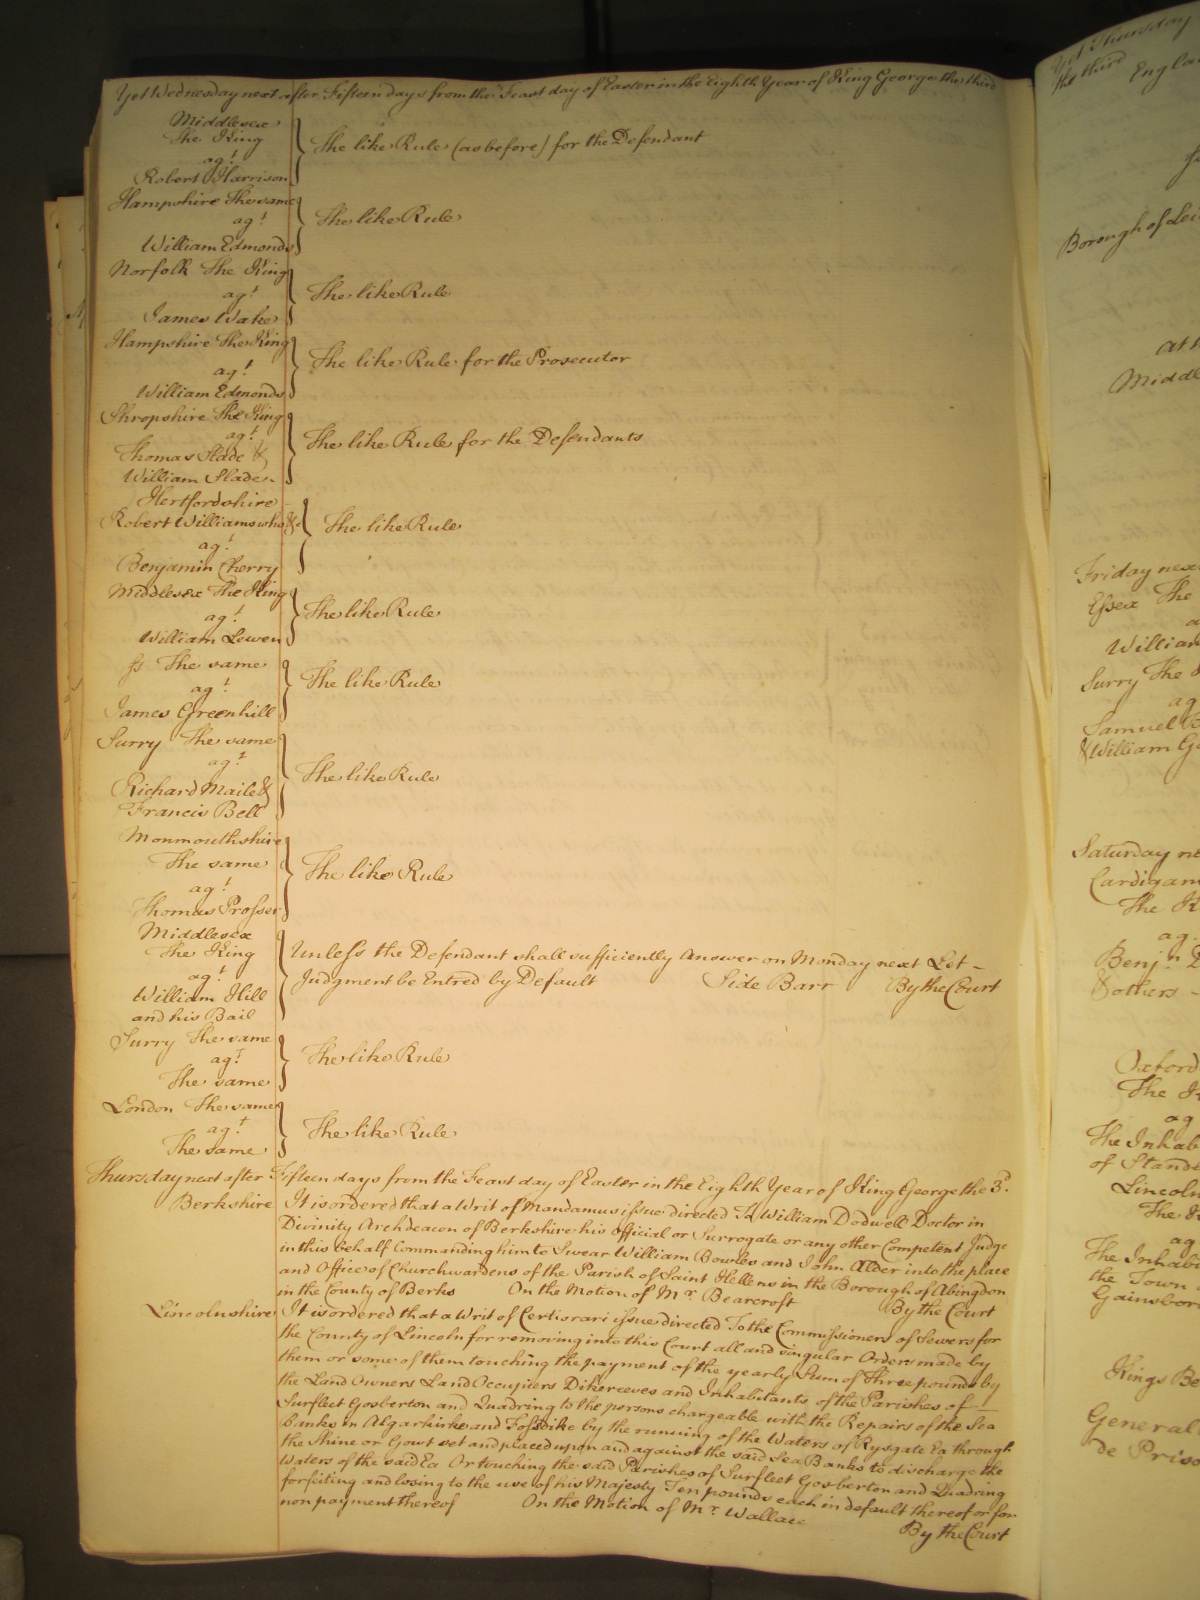 Yet Wednesday next after Fifteen days from the Feast day of Easter in the Eighth Year of King George the third
Middlesex
The King
agt
Robert Harrison
The like Rule (as before) for the Defendant
Hampshire The same
agt
William Edmonds
The like Rule
Norfolk The King
agt
James Wake
The like Rule
Hampshire The King
agt
William Edmonds
The like Rule for the Prosecutor
Shropshire The King
agt
Thomas Slade &
William Slade
The like Rule for the Defendants
Hertfordshire
Robert Williams who &c
agt
Benjamin Cherry
The like Rule
Middlesex The King
agt
William Lewen
The like Rule
ss The same
agt
James Greenhill
The like Rule
Surry The same
agt
Richard Maile &
Francis Bell
The like Rule
Monmouthshire
The same
agt
Thomas Prosser
The like Rule
Middlesex
The King
agt
William Hill
and his Bail
Unless the Defendant shall sufficiently Answer on Monday next Let
Judgment be Entred by Default Side Barr By the Court
Surry The same
agt
The same
The like Rule
London The same
agt
The same
The like Rule
Thursday next after Fifteen days from the Feast day of Easter in the Eighth Year of King George the 3d.
Berkshire It is ordered that a Writ of Mandamus issue directed To William Dodwell Doctor in
Divinity Archdeacon of Berkshire his official or Surrogate or any other Competent Judge
in this behalf Commanding him to Swear William Bowles and John Alder into the place
and Office of Churchwardens of the Parish of Saint Hellens in the Borough of Abingdon
in the County of Berks On the Motion of Mr. Bearcroft By the Court
Lincolnshire It is ordered that a Writ of Certiorari issue directed To the Commissioners of Sewers for
the County of Lincoln for removing into this Court all and singular Orders made by
them or some of them touching the payment of the yearly Sum of Three pounds by
the Land Owners Land Occupiers Dikereeves and Inhabitants of the Parishes of
Surfleet Gosberton and Quadring to the persons chargeable with the Repairs of the Sea
Banks in Algarkirke and Fosdike by the running of the Waters of Rysgate Ea through
the Shine or Gowt set and placed upon and against the said Sea Banks to discharge the
Waters of the said Ea Or touching the said Parishes of Surfleet Gosberton and Quadring
forfeiting and losing to the use of his Majesty Ten pounds each in default thereof or for
non payment thereof On the Motion of Mr. Wallace
By the Court
Yet Thursday
the third
Engla
Borough of Lei
at t
Middl
Friday next
Essex The
a
William
Surry The
ag
Samuel
& William G
Saturday ne
Cardigan
The K
ag
Benjn. D
& others
Oxford
The K
ag
The Inhab
of Stand
Lincoln
The K
ag
The Inhabi
the Town
Gainsbor
Kings Be
General
de Priso